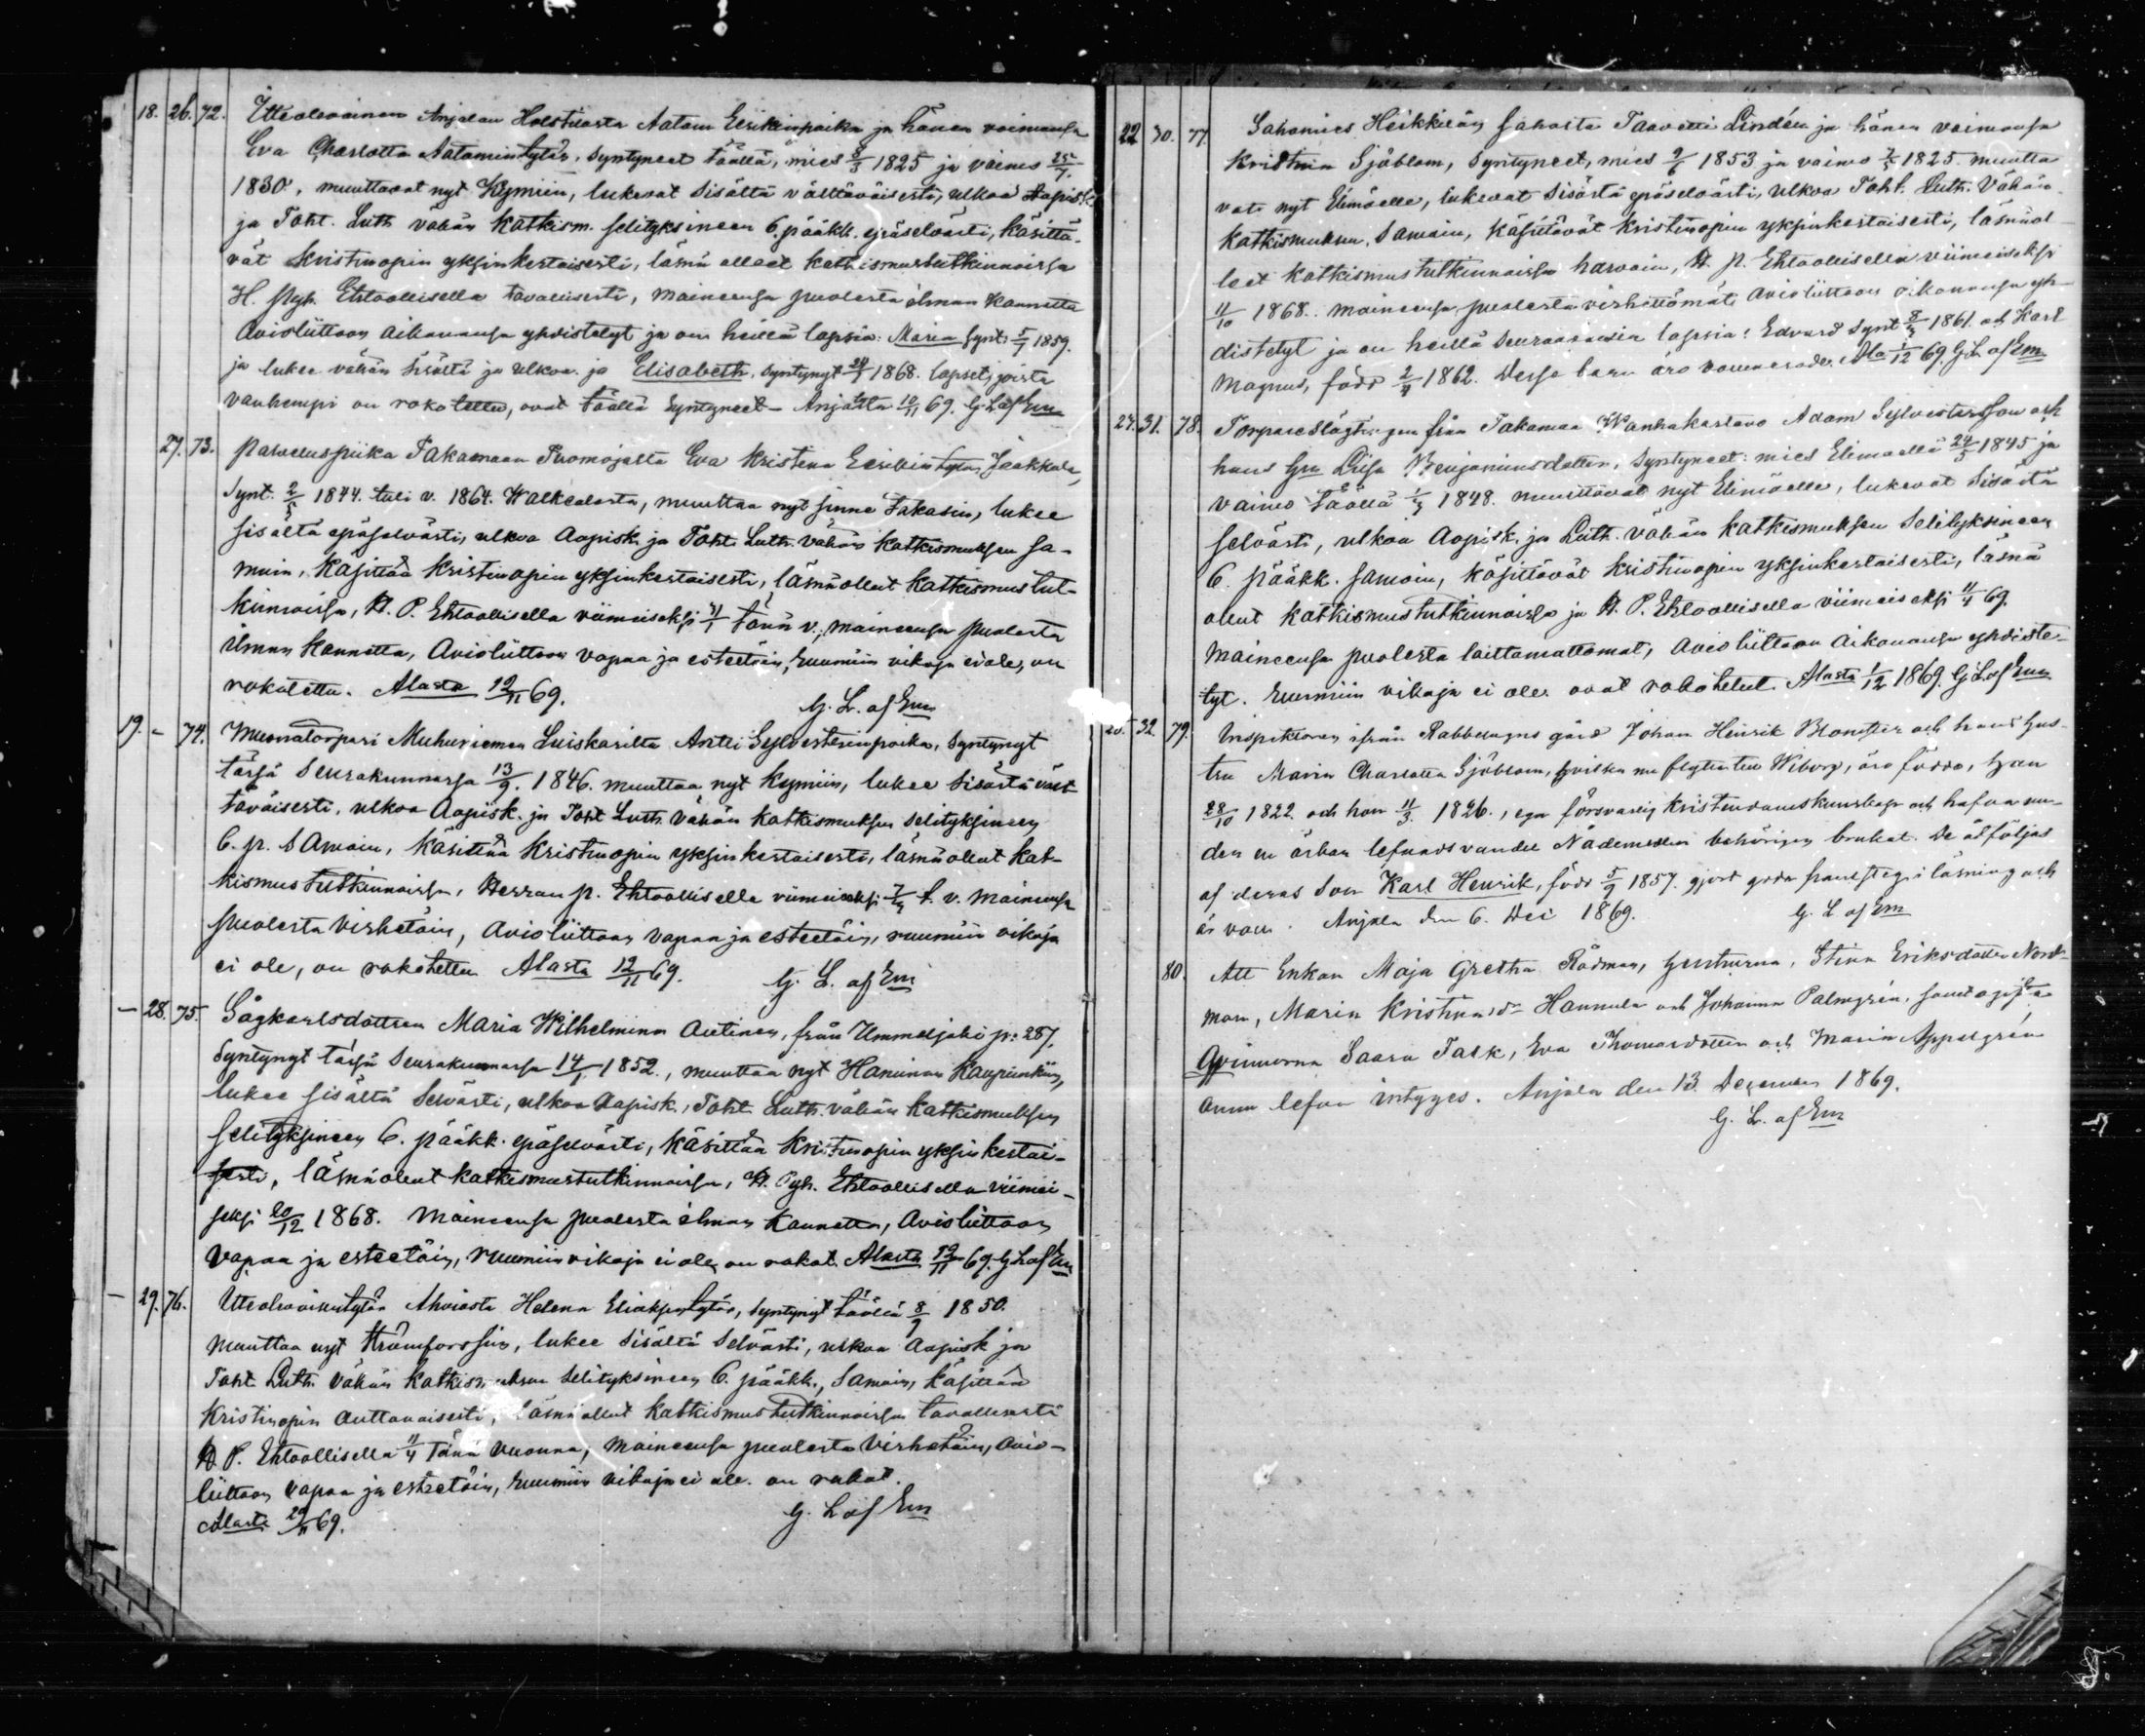 18. 26. 72. Itteolevainen Anjalan Holstilasta Aatam Eerikinpoika ja hänen vaimonsa
Eva Charlotta Aatamintytär, syntyneet täällä, mies 8/3 1825 ja vaimo 25/7
1830, muuttavat nyt Kymiin, lukevat sisältä välttäväisesti, ulkoa Aapisk.
ja Toht. Luth vähän Katkism. selityksineen 6. pääkk. epäselvästi, käsittä-
vät Kristinopin yksinkertaisesti, läsnä olleet katkismustutkinnoissa
H. Pyh. Ehtoollisella tavallisesti, maineensa puolesta ilman kannetta
Avioliittoon aikanansa yhdistetyt ja on heillä lapsia: Maria synt. 5/7 1859.
ja lukee vähän sisältä ja ulkoa. ja Elisabeth, syntynyt 24/1 1868. lapset, joista
vanhempi on rokotettu, ovat täällä syntyneet - Anjalta 10/11 69. G. L af Em
27. 73. Palveluspiika Takamaan Tuomojalta Eva Kristina Eerikintytär Jaakkola,
Synt. 2/5 1844. tuli v. 1864. Walkealasta, muuttaa nyt sinne takasin, lukee
sisältä epäselvästi, ulkoa Aapisk. ja Toht. Luth. vähän Katkismuksen sa-
moin, käsittää Kristinopin yksinkertaisesti, läsnäollut Katkismustut-
kinnoissa, H. P. Ehtoollisella viimeiseksi tänä v., maineensa puolesta
ilman kannetta, Avioliittoon vapaa ja esteetöin, ruumiin vikaja ei ole, on
rokotettu. Alasta 12/11 69. G. L. af Em
19. - 74. Muonatorpari Muhuniemen Luiskarilta Antti Sylvesterinpoika, syntynyt
tässä Seurakunnassa 13/9 1846. muuttaa nyt Kymiin, lukee sisältä vält-
täväisesti, ulkoa Aapisk. ja Toht Luth. vähän katkismuksen selityksineen
6. p. samoin, käsittää Kristinopin yksinkertaisesti, läsnäollut kat-
kismustutkinnoissa, Herran p. Ehtoollisella viimeiseksi t. v. maineensa
puolesta virhetöin, Avioliittoon vapaa ja esteetöin, ruumiin vikaja
ei ole, on rokotettu Alasta 12/11 69. G. L. af Em
- 28. 75. Sågkarlsdottren Maria Wilhelmina Antinen, från Ummeljoki p. 287,
Syntynyt tässä Seurakunnassa 14/1 1852., muuttaa nyt Haminan Kaupunkiin,
lukee sisältä selvästi, ulkoa Aapisk., Toht. Luth. vähän katkismuksen
selityksineen 6. pääkk. epäselvästi, käsittää Kristinopin yksinkertai-
sesti, läsnäollut katkismustutkinnoissa, H. Pyh. Ehtoollisella viimei-
seksi 20/12 1868. Maineensa puolesta ilman kannetta, Avioliittoon
vapaa ja esteetöin, ruumiin vikaja ei ole, on rokot. Alasta 12/11 69. G L af Em
- 29. 76. Itteolevaisentytär Ahviosta Helena Eliaksentytär, syntynyt täällä 8/9 1850.
muuttaa nyt Strömforssiin, lukee sisältä selvästi, ulkoa Aapisk ja
Toht Luth. vähän katkismuksen selityksineen 6. pääkk., samoin, käsittää
Kristinopin auttavaisesti, läsnäollut katkismustutkinnoissa tavallisesti
H. P. Ehtoollisella 11/4 tänä vuonna, maineensa puolesta virhetöin, avio-
liittoon vapaa ja esteetöin, ruumiin vikaja ei ole. on rokot.
Alasta 29/11 69. G. L af Em
22 30. 77. Sahamies Heikkilän sahasta Taavetti Lindén ja hänen vaimonsa
Kristina Sjöblom, syntyneet, mies 9/6 1853 ja vaimo 1825 muutta
vat nyt Elimäelle, lukevat sisältä epäselvästi, ulkoa Toht. Luth. vähän
katkismuksen samoin, käsittävät Kristinopin yksinkertaisesti, läsnäol-
leet katkismustutkinnoissa harvoin, H. p. Ehtoollisella viimeiseksi
11/10 1868. maineensa puolesta virhettömät avioliittoon aikanansa yh-
distetyt ja on heillä seuraavaisia lapsia: Edvard synt 8/3 1861. och Karl
Magnus, född 1862. Dessa barn äro vaccinerade. Ala 1/12 69. G. L. af Em
24. 31. 78. Torpareslägtingen från Takamaa Wanhakartano Adam Sylvestersson och
hans hu Liisa Benjaminsdotter, syntyneet: mies Elimäellä 24/5 1845 ja
vaimo täällä 1848. muuttavat nyt Elimäelle, lukevat sisältä
selvästi, ulkoa Aapisk. ja Luth. vähän katkismuksen selityksineen
6. pääkk. samoin, käsittävät kristinopin yksinkertaisesti, läsnä
olleet katkismustutkinnoissa ja H. P. Ehtoollisella viimeiseksi 11/4 69.
maineensa puolesta laittamattomat, avioliittoon aikanansa yhdiste-
tyt. ruumiin vikaja ei ole. ovat rokotetut. Alasta 1/12 1869. G L af Em
32. 79. Inspektoren ifrån Rabbelugns gård Johan Henrik Blomster och hans hus-
tru Maria Charlotta Sjöblom, hvilka nu flytta till Wiborg, äro födde, han
28/10 1822. och hon 11/3. 1826., ega försvarlig kristendomskunskap och hafva un-
der en ärbar lefnadsvandel Nådemedlen behörigen brukat. De åtföljas
af deras son Karl Henrik, född 5/9 1857. gjort goda framsteg i läsning och
är vacc. Anjala den 6. Dec 1869. G. L af Em
80. Att Enkan Maja Gretha Rådman, hustrurna, Stina Eriksdotter Nord-
man, Maria Kristina Hannula och Johanna Palmgrén, samt ogifta
qvinnorna Saara Task, Eva Thomasdotter och Maria Appelgrén
ännu lefva intyges. Anjala den 13. December 1869.
G. L. af Em